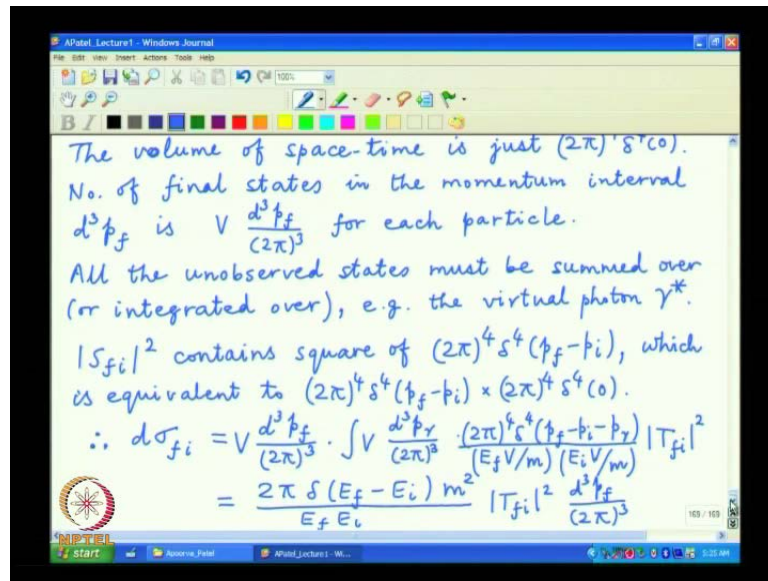 APatel_Lecture1 - Windows Journal
File Edit View Insert Actions Tools Help
100%
B I
The volume of space-time is just (2π)⁴ δ⁴(0).
No. of final states in the momentum interval
d³p_f is V d³p_f/(2π)³ for each particle.
All the unobserved states must be summed over
(or integrated over), e.g. the virtual photon γ*.
|S_fi|² contains square of (2π)⁴ δ⁴(p_f-p_i), which
is equivalent to (2π)⁴ δ⁴(p_f-p_i) × (2π)⁴ δ⁴(0).
∴ dσ_fi = V d³p_f/(2π)³ · ∫V d³p_γ/(2π)³ · (2π)⁴δ⁴(p_f-p_i-p_γ)/((E_f V/m)(E_i V/m)) |T_fi|²
= 2π δ(E_f-E_i) m²/(E_f E_i) |T_fi|² d³p_f/(2π)³
169 / 169
NPTEL
start Apoorva_Patel APatel_Lecture1 - Wi... 5:25 AM